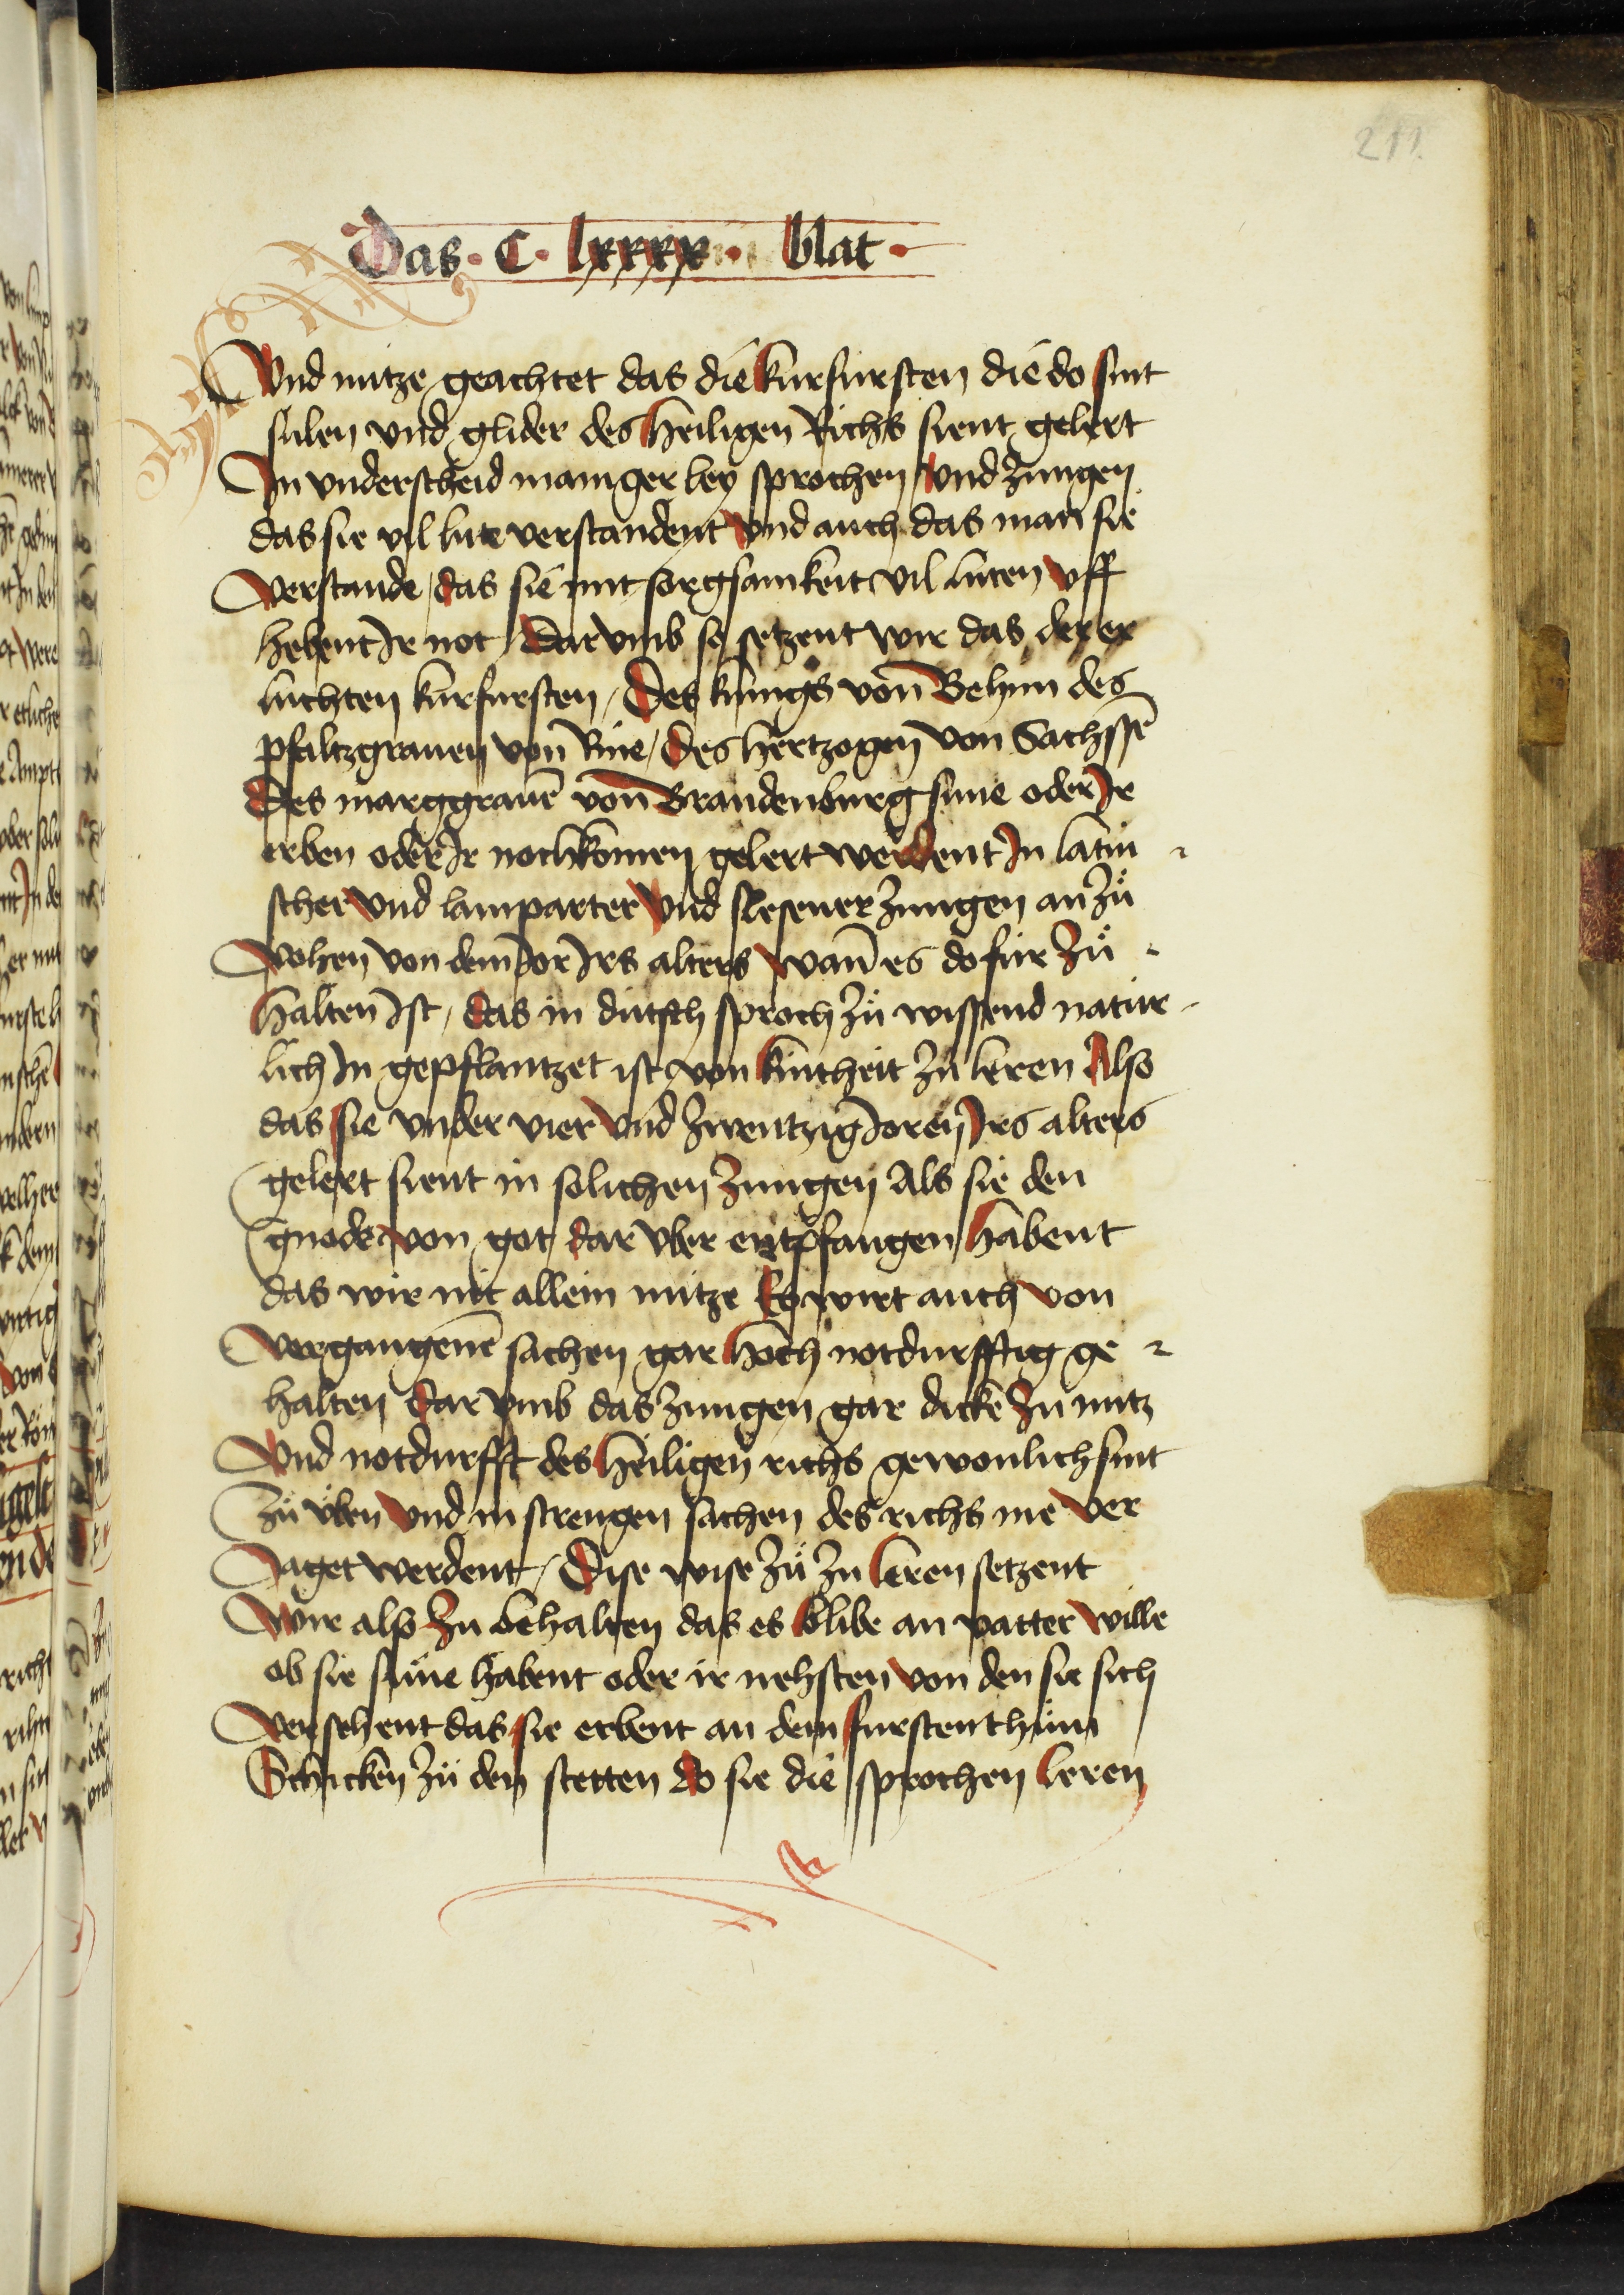 211
Das · C · lxxxx · blat ·
Vnd nutze geachtet das die kurfursten die do sint
sulen vnd glider des heiligen Richs sient gelert
In vnderscheid maniger ley sprochen vnd zungen
das sie vil lute verstandent vnd auch das man sie
verstande / das sie mit sorgsamkeit vil luten vff
hebent Ir not / Dar vmb so setzent wir das der er
luchten kurfursten / Des kunigs von Behem des
pfaltzgrauen von Rine / des hertzogen von Sachssē
Des marggrauē von Brandenburg sune oder Ir
erben oder Ir nochkomen gelert werdent In latin
scher vnd lamparter vnd slesener zungen an zů
vohen von dem Ior Irs alters wan̄ es do fur zů
halten Ist / das in dutsch sproch zů wissend natur
lich In gepflantzet ist von kintheit zů leren Also
das sie vnder vier vnd zwentzig Ioren Irs alters
gelert sient in solichen zungen Als sie den
gnode von got dar vber entpfangen habent
das wir nit allein nutze Es wirt auch von
vergangenē sachen gar hoch notdurfftig ge
halten Dar vmb das zungen gar dicke zu nutz
Vnd notdurfft des heiligen richs gewonlich sint
zů vben vnd in strengen sachen des richs me ver
Iaget werdent / Dise wise zů zu leren setzent
Wir also zu behalten das es blibe an vatter wille
ob sie sune habent oder ir nehsten von den sie sich
versehent das sie erbent an dem furstenthům
Schicken zů den stetten do sie die sprochen leren